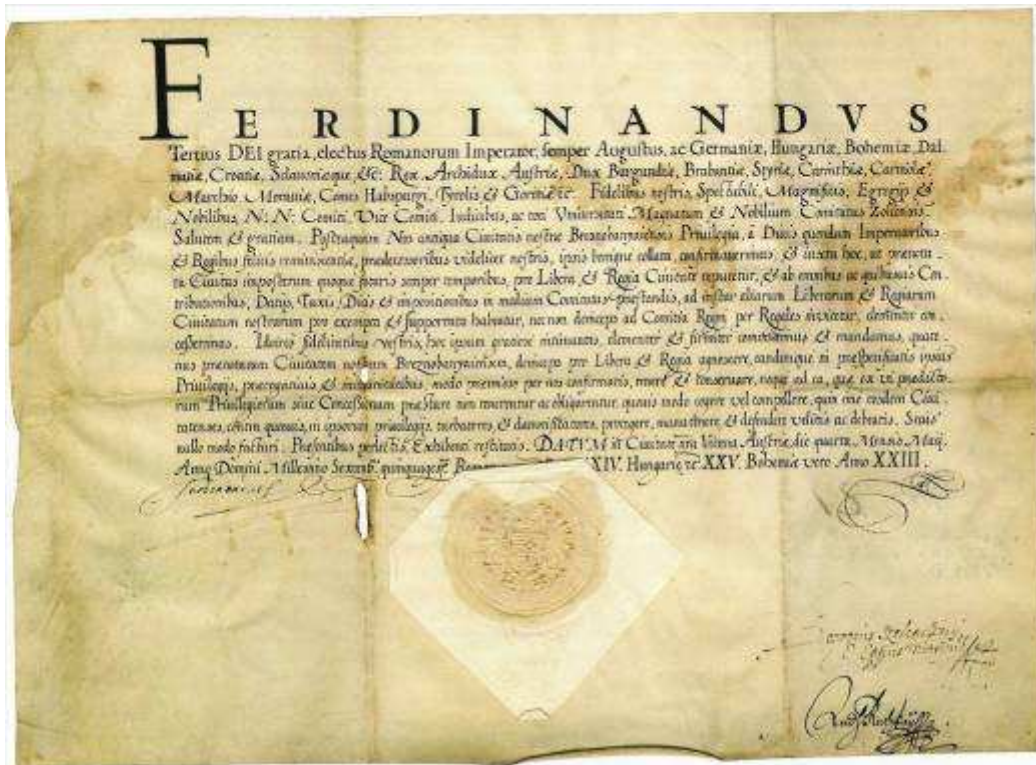 FERDINANDVS
Tertius DEI gratia, electus Romanorum Imperator, semper Augustus, ac Germaniæ, Hungariæ, Bohemiæ, Dal
matiæ, Croatiæ, Sclavoniæque &c: Rex, Archidux Austriæ, Dux Burgundiæ, Brabantiæ, Styriæ, Carinthiæ, Carniolæ,
Marchio Moraviæ, Comes Habspurgi, Tyrolis & Goritiæ &c. Fidelibus nostris, Spectabili, Magnificis, Egregijs &
Nobilibus, N: N: Comiti, Vice Comiti, Iudicibus, ac toti Vniversitati Magnatum & Nobilium Comitatus Zoliensis.
Salutem & gratiam. Posteaquam Nos antiqua Civitatis nostræ Privilegia, à Divis quondam Imperatoribus
& Regibus prædecessoribus videlicet nostris, ipsis benigne collata, confirmavermus, & iuxta hoc, ut prænota
ta Civitas imposterum quoque futuris semper temporibus, pro Libera & Regia Civitate reputetur, & ab omnibus ac quibusvis Con
tributionibus, Datijs, Taxis, & impositionibus in medium Comitatus præstandis, ad instar aliarum Liberarum & Regiarum
Civitatum nostrarum pro exempta & supportata habeatur, nec non deinceps ad Comitia Regni per Regales invitetur, clementer con
cesserimus. fidelitatibus vestris, hoc ipsum gratiose intimantes, clementer & firmiter committimus & mandamus, quate
nus prænotatam Civitatem nostram deinceps pro Libera & Regia agnoscere, eandemque in præspecificatis ipsius
Privilegijs, prærogativis & immunitatibus, modo præmisso per nos confirmatis, tenere & conservare, neque ad ea, quæ ex vi prædicto
rum Privilegiorum sive Concessionum præstare non tenerentur ac obligarentur, quovis modo cogere vel compellere, quin imo eosdem Civi
tatenses, contra quosvis, in ipsorum privilegijs, turbatores, & damnificatores, protegere, manutenere & defendere velitis ac debeatis. Secus
nullo modo facturi. Præsentibus perlectis, Exhibenti restitutis. DATVM in Civitate nra Vienna Austriæ, die quarta Mensis Maij,
Anno Domini Millesimo XIV. Hungariæ &c XXV. Bohemiæ vero Anno XXIII.